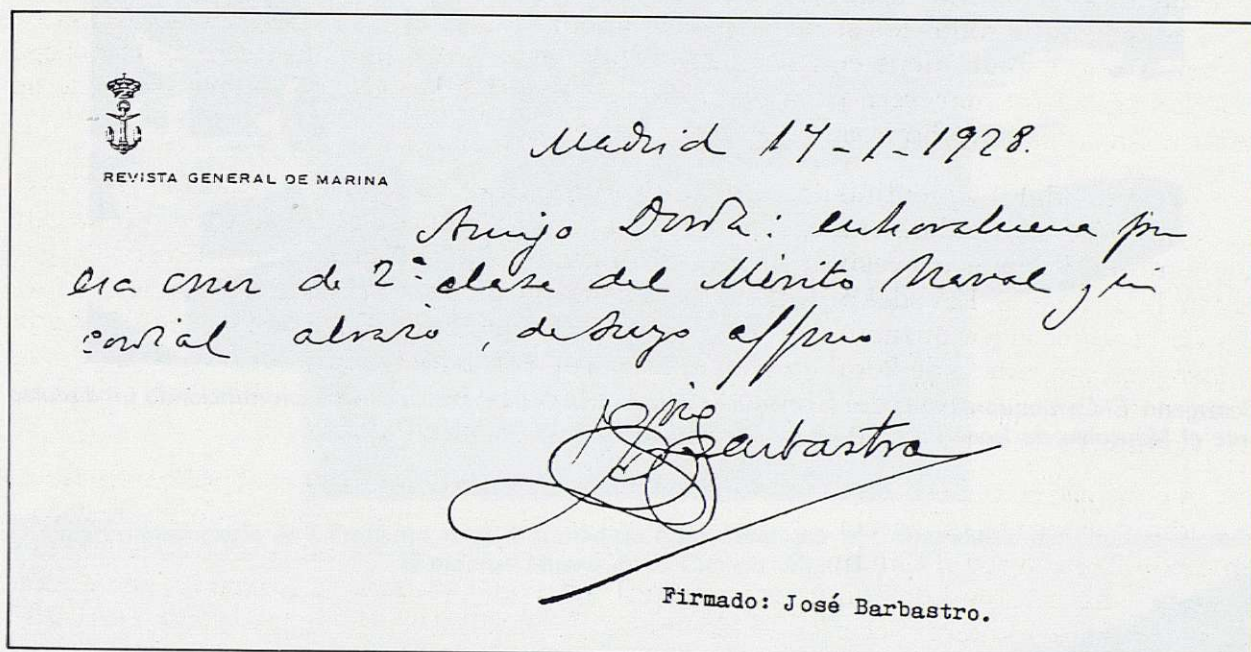 REVISTA GENERAL DE MARINA
Madrid 17-1-1928.
Amigo Dorda: enhorabuena por
esa cruz de 2ª clase del Mérito Naval y un
cordial abrazo, de suyo affmo
José
Barbastro
Firmado: José Barbastro.